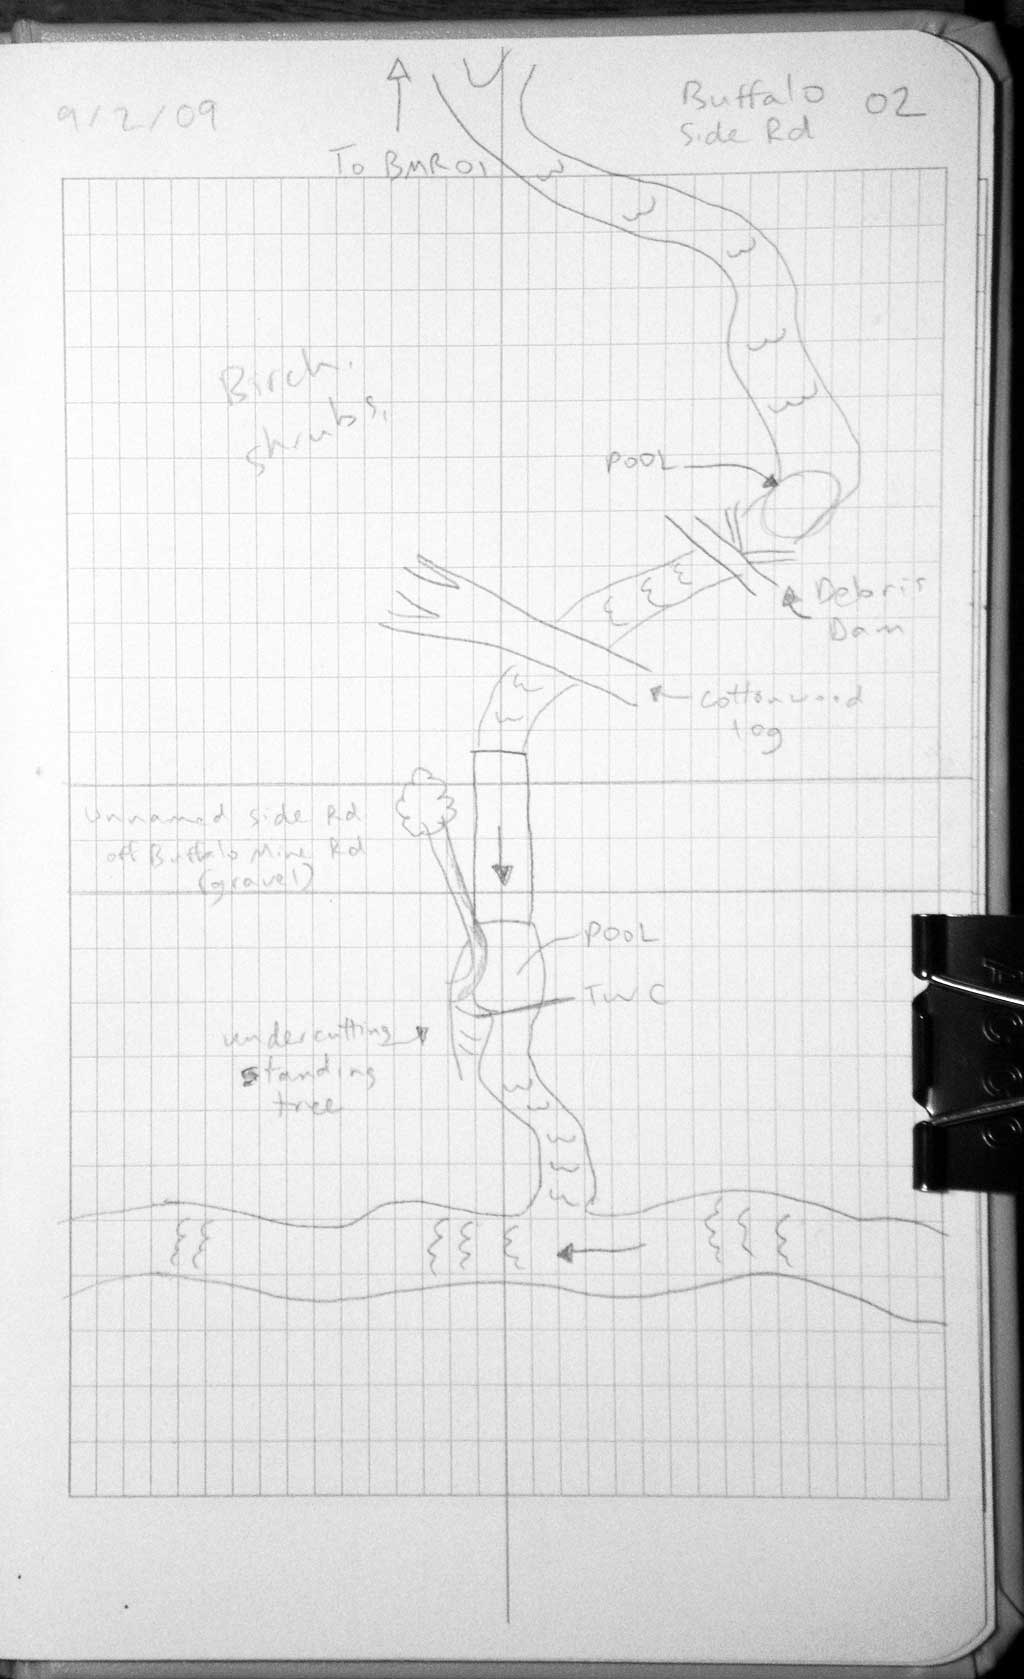 9/2/09
Buffalo 02
Side Rd
To BMR01
Birch.
shrubs.
POOL
Debris
Dam
cottonwood
log
unnamed side Rd
off Buffalo Mine Rd
(gravel)
POOL
TWC
undercutting
standing
tree